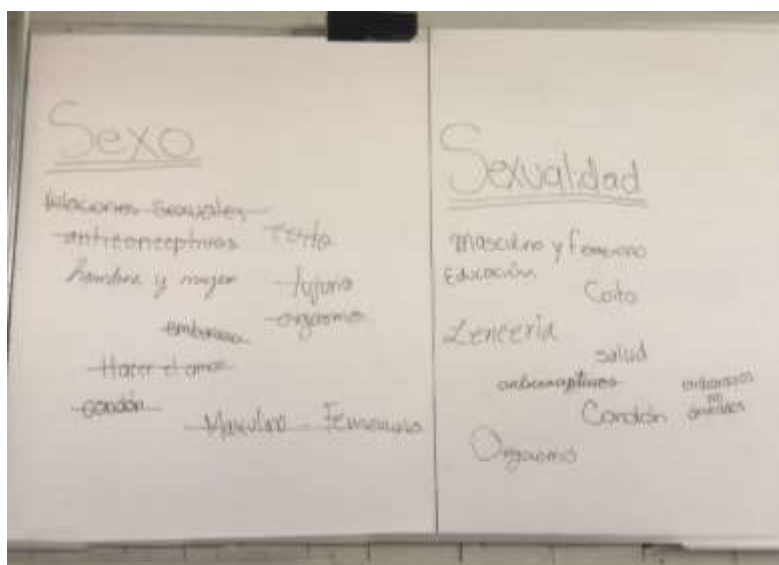 Sexo
Relaciones sexuales
anticonceptivos
hombre y mujer
lujuria
orgasmo
embarazo
Hacer el amor
condón
Masculino - Femenino
Sexualidad
Masculino y femenino
Educación
Coito
Lencería
salud
anticonceptivos
embarazos
no
deseados
Condón
Orgasmo